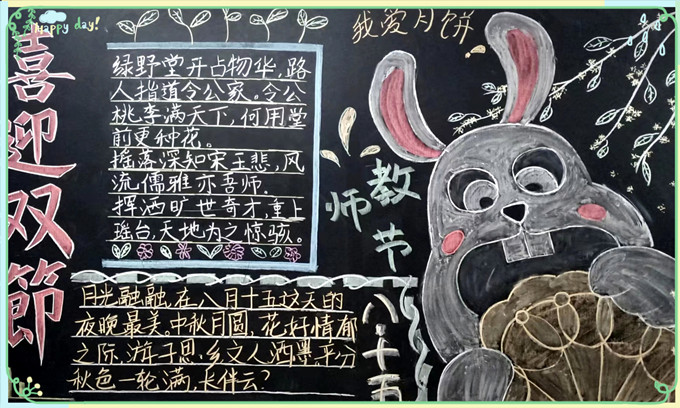 Happy day!
喜迎双節
我爱月饼
绿野堂开占物华,路
人指道令公家。令公
桃李满天下,何用堂
前更种花。
摇落深知宋玉悲,风
流儒雅亦吾师.
挥洒旷世奇才,重上
瑶台,天地为之惊骇。
教师节
月光融融,在八月十五这天的
夜晚最美。中秋月圆,花好情郁
之际,游子思乡,文人洒墨,平分
秋色一轮满,长伴云?
八.十五